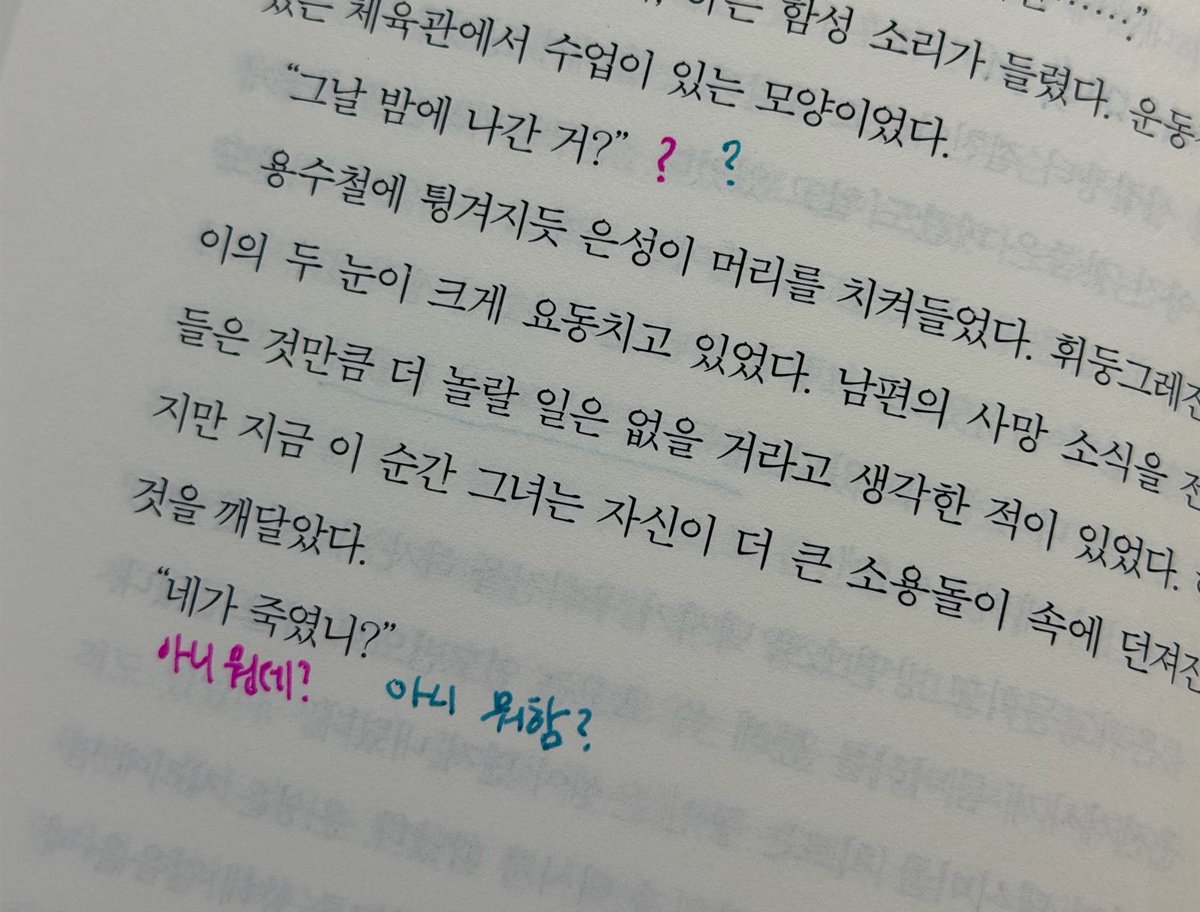 있는 체육관에서 수업이 있는 모양이었다.
함성 소리가 들렸다. 운동
“그날 밤에 나간 거?” ? ?
용수철에 튕겨지듯 은성이 머리를 치켜들었다. 휘둥그레진
이의 두 눈이 크게 요동치고 있었다. 남편의 사망 소식을 전
들은 것만큼 더 놀랄 일은 없을 거라고 생각한 적이 있었다.
지만 지금 이 순간 그녀는 자신이 더 큰 소용돌이 속에 던져진
것을 깨달았다.
“네가 죽였니?”
아니 뭔데? 아니 뭐함?